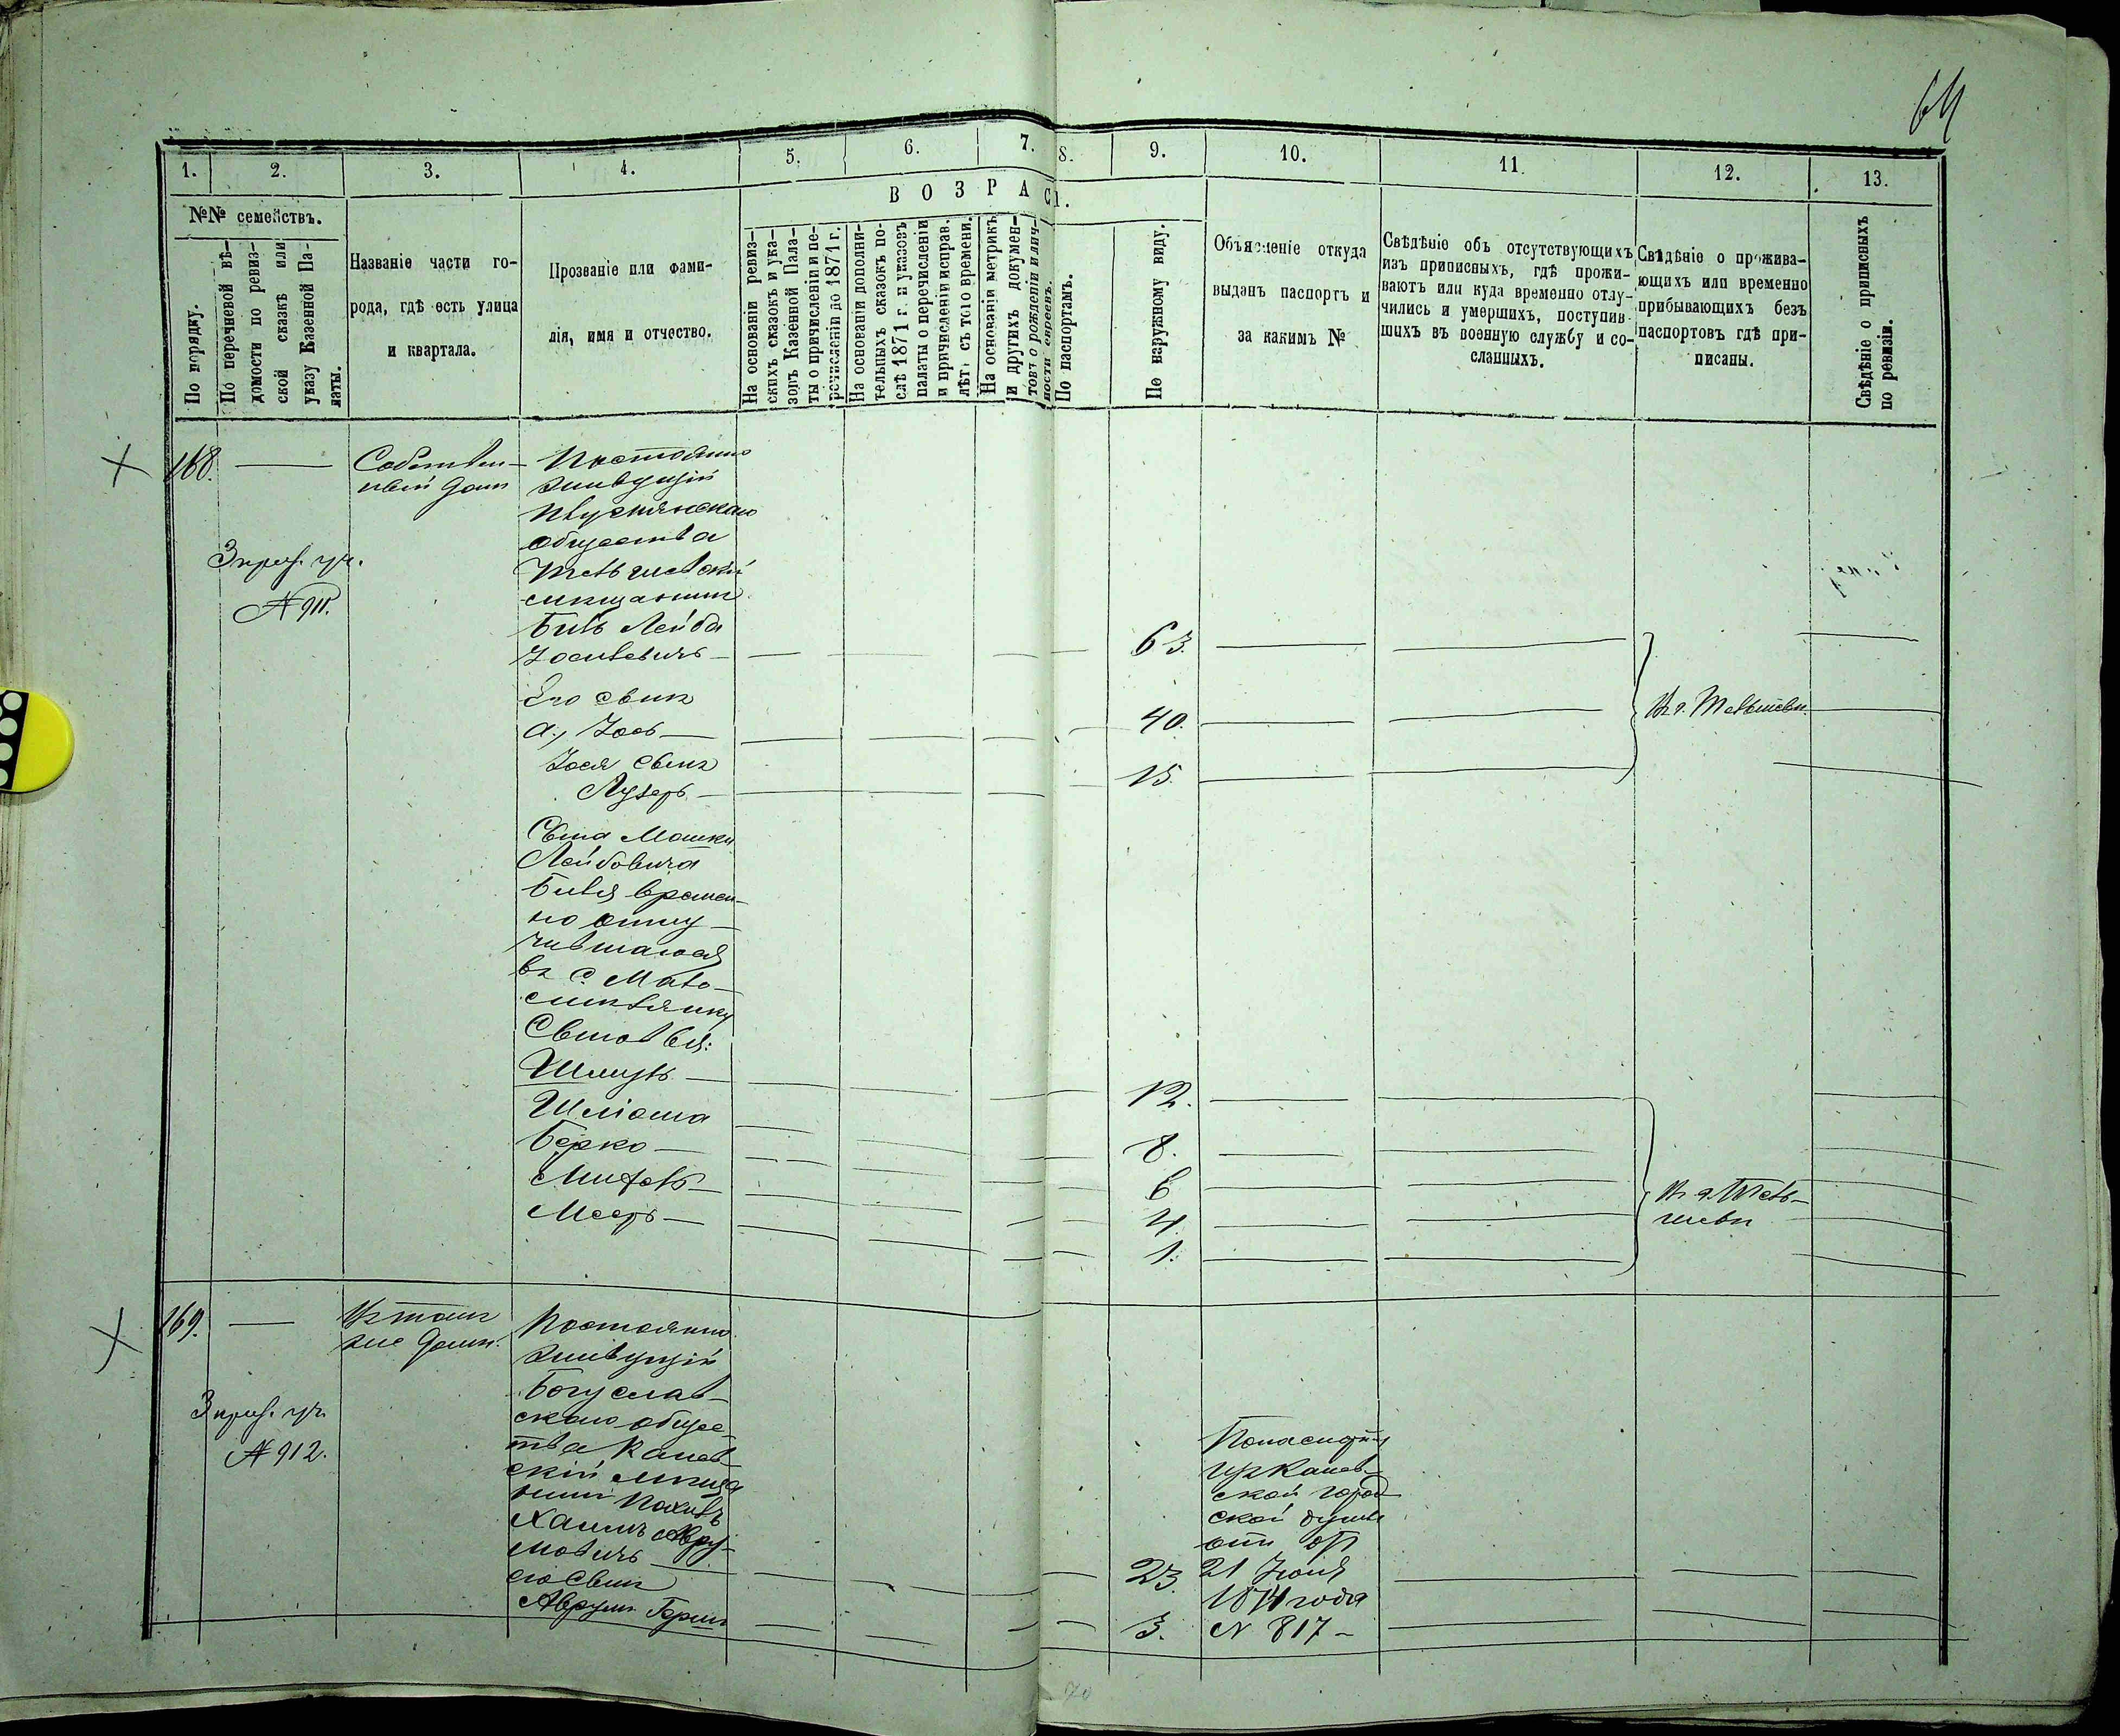 64
1.
2.
3.
4.
5.
6.
7.
8.
9.
10.
11.
12.
13.
№№ семействъ.
ВОЗРАСТ.
По порядку.
По перечневой вѣ-
домости по ревиз-
ской сказкѣ или
указу Казенной Па-
латы.
Названіе части го-
рода, гдѣ есть улица
и квартала.
Прозваніе или фами-
лія, имя и отчество.
На основаніи ревиз-
скихъ сказокъ и ука-
зовъ Казенной Пала-
ты о причисленіи и пе-
речисленіи до 1871 г.
На основаніи дополни-
тельныхъ сказокъ по-
слѣ 1871 г. и указовъ
палаты о перечисленіи
и причисленіи исправ.
лѣтъ съ того времени.
На основаніи метрикъ
и другихъ докумен-
товъ о рожденіи и лич-
ности евреевъ.
По паспортамъ.
По наружному виду.
Объясненіе откуда
выданъ паспортъ и
за какимъ №
Свѣдѣніе объ отсутствующихъ
изъ приписныхъ, гдѣ прожи-
ваютъ или куда временно отлу-
чились и умершихъ, поступив-
шихъ въ военную службу и со-
сланныхъ.
Свѣдѣніе о прожива-
ющихъ или временно
прибывающихъ безъ
паспортовъ гдѣ при-
писаны.
Свѣдѣніе о приписныхъ
по ревизіи.
168.
Собствен-
ный домъ
3 приз. уч.
№ 911.
Постоянно
живущій
общества
мѣщанинъ
Лейба
Іосивевичъ
63.
Его сынъ
а, Іось
40.
Въ г.
Іося сынъ
Лузеръ
15.
Сына Мошки
Лейбовича
времен-
но отлу-
чившагося
въ с.
Сыновья:
Шмуль
12.
Шліома
8.
Берко
6
4
Мееръ
1.
Въ г.
169.
Въ томъ
же домѣ.
3 приз. уч.
№ 912.
Постоянно
живущій
Богуслав-
скаго обще-
тва Канев-
скій мѣща
нинъ
Хаимъ Авру-
мовичъ
23.
его сынъ
Аврумъ Герш
3.
изъ Канев-
ской город
ской думы
отъ
21 Іюня
1874 года
№ 817
70